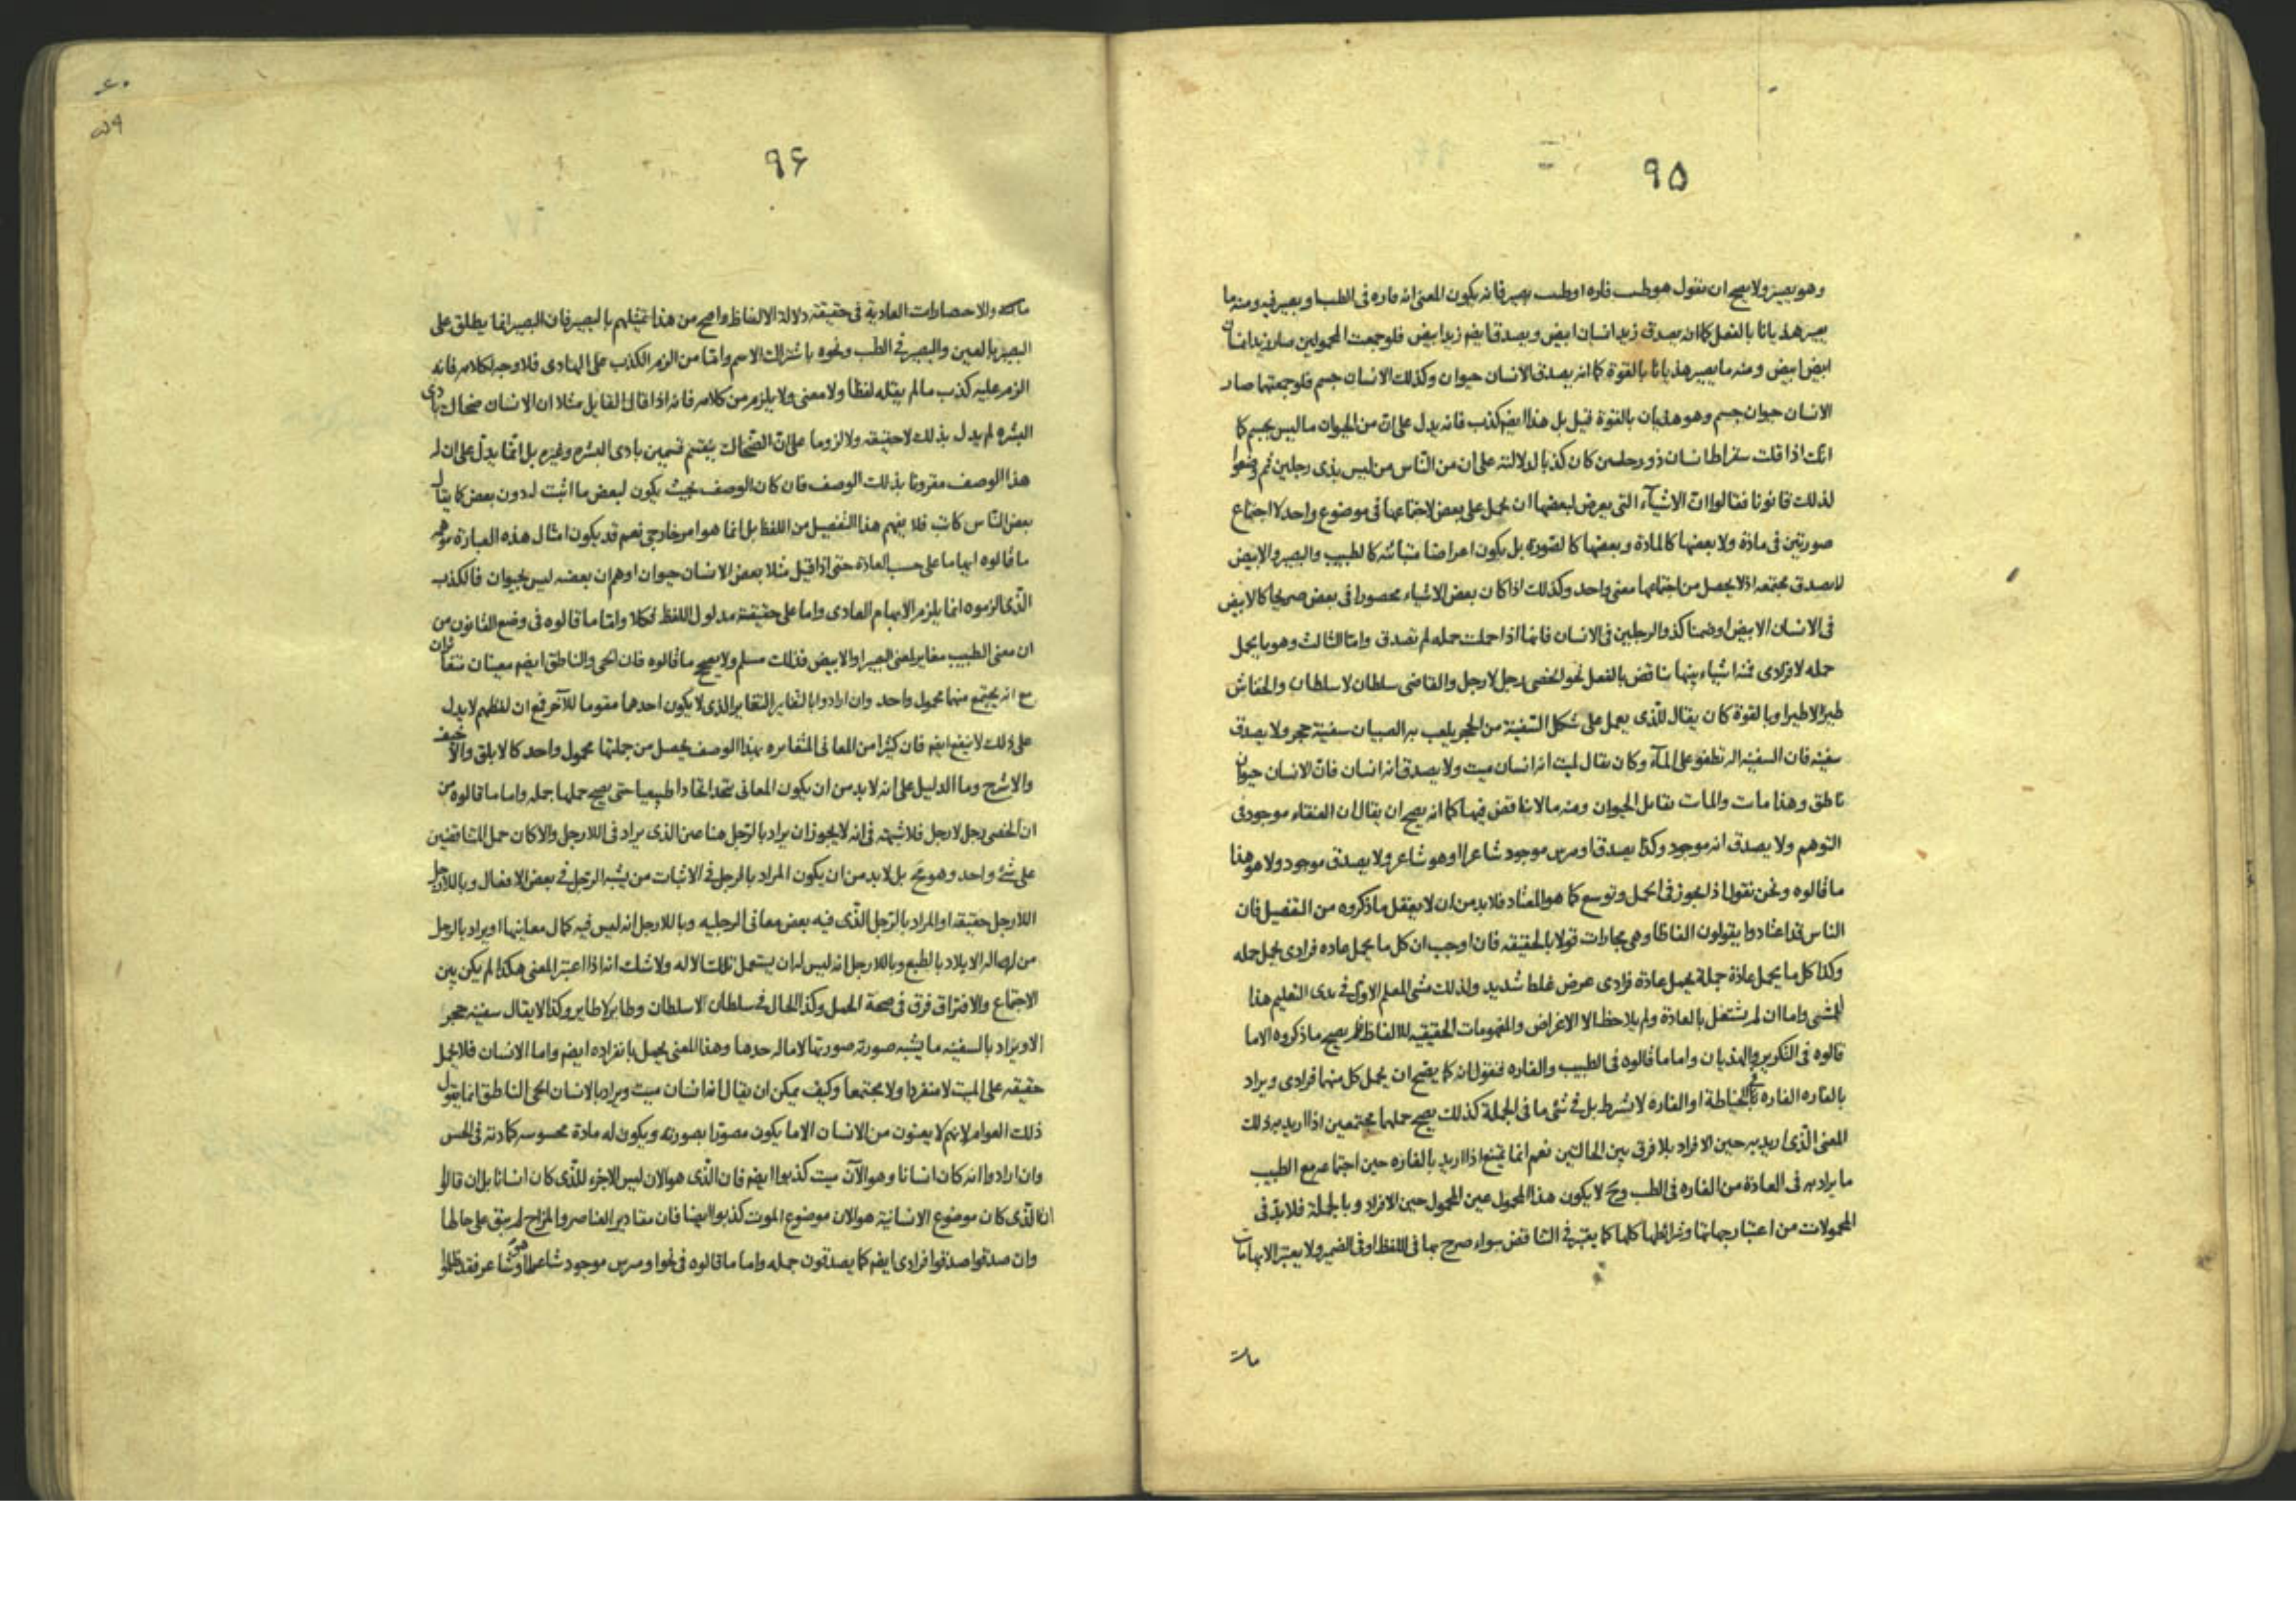 ٩٥
وهو بصير ولا يصح ان نقول هو طبيب فاره او طبيب بصير فانه يكون المعنى انه فاره فى الطب او بصير فيه ومنه ما
يصير هذيانا بالفعل كما انه يصدق زيد انسان ابيض ويصدق ايضا زيد ابيض فلو جمعت المحمولين صار زيد انسان
ابيض ابيض ومنه ما يصير هذيانا بالقوة كما انه يصدق الانسان حيوان وكذلك الانسان جسم فلو جمعتها صار
الانسان حيوان جسم وهو هذيان بالقوة قيل بل هذا ايضا كذب فانه يدل على ان من الحيوان ما ليس بجسم كما
انك اذا قلت سقراط انسان ذو رجلين كان كذبا لدلالته على ان من الناس من ليس بذى رجلين ثم وضعوا
لذلك قانونا فقالوا ان الاشيآء التى يعرض لبعضها ان يحمل على بعض لاجتماعها فى موضوع واحد لا اجتماع
صورتين فى مادة ولا بعضها كالمادة وبعضها كالصورة بل يكون اعراضا متباينة كالطبيب والبصير والابيض
لا يصدق مجتمعه اذ لا يحصل من اجتماعها معنى واحد وكذلك اذا كان بعض الاشياء محصورا فى بعض صريحا كالابيض
فى الانسان الابيض او ضمنا كذو الرجلين فى الانسان فانها اذا حملت جمله لم تصدق واما الثالث وهو ما يحمل
جمله لا فرادى فمنه اشياء بينها تناقض بالفعل نحو الخصى رجل لا رجل والقاضى سلطان لا سلطان والخفاش
طير لا طير او بالقوة كان يقال للذى يعمل على شكل السفينة من الحجر يلعب به الصبيان سفينة حجر ولا يصدق
سفينه فان السفينه اله تطفو على المآء وكان يقال لميت انه انسان ميت ولا يصدق انه انسان فان الانسان حيوان
ناطق وهذا مات والمات يقابل الحيوان ومنه ما لا تناقض فيها كما انه يصح ان يقال ان العنقاء موجود فى
التوهم ولا يصدق انه موجود وكذا يصدق اومرس موجود شاعرا وهو شاعر ولا يصدق موجود ولا هو هذا
ما قالوه ونحن نقول اذا يجوز فى الحمل وتوسع كما هو المعتاد فلا بد من ان لا يعقل ما ذكروه من التفصيل فان
الناس قد اعتادوا يقولون الفاظا وهى مجازات قولا بالحقيقه فان اوجب ان كل ما يحمل عاده فرادى يحمل جمله
وكذا كل ما يحمل عادة جملة يحمل عادة فرادى عرض غلط شديد ولذلك مشى المعلم الاول فى بدى التعليم هذا
المشى واما ان لم يشتغل بالعادة ولم يلاحظ الا الاغراض والمفهومات الحقيقيه للالفاظ فلم يصح ما ذكروه الا ما
قالوه فى التكوير والهذيان واما ما قالوه فى الطبيب والفاره فنقول انه كما يصح ان يحمل كل منهما فرادى ويراد
بالفاره الفاره فى الخياطة او الفاره لا بشرط بل فى شئ ما فى الجملة كذلك يصح حملهما مجتمعين اذا اريد به ذلك
المعنى الذى اريد به حين الافراد بلا فرق بين الحالتين نعم انما يمتنع اذا اريد بالفاره حين اجتماعه مع الطبيب
ما يراد به فى العادة من الفاره فى الطب وح لا يكون هذا المحمول عين المحمول حين الافراد وبالجملة فلا بد فى
المحمولات من اعتبار جهاتها وشرائطها كلها كما يعتبر فى التناقض سواء صرح بها فى اللفظ او فى الضمير ولا يعتبر الابهامات
٤٠
٩٦
والاحصارات العادية فى حقيقته دلالة الالفاظ واصح من هذا تمثيلهم بالبصير فان البصير انما يطلق على
البصير بالعين والبصير فى الطب ونحوه باشتراك الاسم واما من الزم الكذب على المنادى فلا وجه لكلامه فانه
الزم عليه كذب ما لم يقله لفظا ولا معنى ولا يلزم من كلامه فانه اذا قال القايل مثلا ان الانسان ضحاك بادى
البشره لم يدل بذلك لا حقيقه ولا لزوما على ان الضحاك ينقسم قسمين بادى البشره وغيره بل انما يدل على ان له
هذا الوصف مقرونا بذلك الوصف فان كان الوصف بحيث يكون لبعض ما اثبت له دون بعض كما يقال
بعض الناس كاتب فلا يفهم هذا التفصيل من اللفظ بل انما هو امر خارجى نعم قد يكون امثال هذه العبارة موهمه
ما قالوه ايهاما على حسب العادة حتى اذا قيل مثلا بعض الانسان حيوان اوهم ان بعضه ليس بحيوان فالكذب
الذى الزموه انما يلزم الايهام العادى واما على حقيقة مدلول اللفظ فكلا واما ما قالوه فى وضع القانون من
ان معنى الطبيب مغاير لمعنى البصير او الابيض فذلك مسلم ولا يصح ما قالوه فان الحى والناطق ايضا معنيان متغايران
مع انه يجتمع منهما محمول واحد وان ارادوا بالتغاير التغاير الذى لا يكون احدهما مقوما للآخر فمع ان لفظهم لا يدل
على ذلك لا ينفع ايضا فان كثيرا من المعانى المتغايره بهذا الوصف يحصل من جملتها محمول واحد كالابلق والاخيف
والاشج وما الدليل على انه لا بد من ان يكون المعانى تتحد اتحادا طبيعيا حتى يصح حملها جمله واما ما قالوه من
ان الخصى رجل لا رجل فلا شبهة فى انه لا يجوز ان يراد بالرجل هنا عين الذى يراد فى اللارجل والا كان حمل المتناقضين
على شئ واحد وهو مح بل لا بد من ان يكون المراد بالرجل فى الاثبات من يشبه الرجل فى بعض الافعال وباللارجل
اللارجل حقيقه او المراد بالرجل الذى فيه بعض معانى الرجليه وباللارجل انه ليس فيه كمال معاينها او يراد بالرجل
من له اله الايلاد بالطبع وباللارجل انه ليس له ان يستعمل تلك الاله ولا شك انه اذا اعتبر المعنى هكذا لم يكن بين
الاجتماع والافتراق فرق فى صحة الحمل وكذا الحال فى سلطان لا سلطان وطاير لا طاير وكذا لا يقال سفينه حجر
الا ويراد بالسفينه ما يشبه صورته صورتها لا ما له حدها وهذا المعنى يحمل بانفراده ايضا واما الانسان فلا يحمل
حقيقه على الميت لا منفردا ولا مجتمعا وكيف يمكن ان يقال انه انسان ميت ويراد بالانسان الحى الناطق انما يقول
ذلك العوام لانهم لا يعنون من الانسان الا ما يكون مصورا بصورته ويكون له مادة محسوسه كمادته فى الحس
وان ارادوا انه كان انسانا وهو الآن ميت كذبوا ايضا فان الذى هو الان ليس الا جزء للذى كان انسانا بل ان قالوا
ان الذى كان موضوع الانسانية هو الان موضوع الموت كذبوا ايضا فان مقادير العناصر والمزاج لم يبق على حالها
وان صدقوا صدقوا فرادى ايضا كما يصدقون جمله واما ما قالوه فى نحو اومرس موجود شاعرا او هو شاعر فقد ظلموا